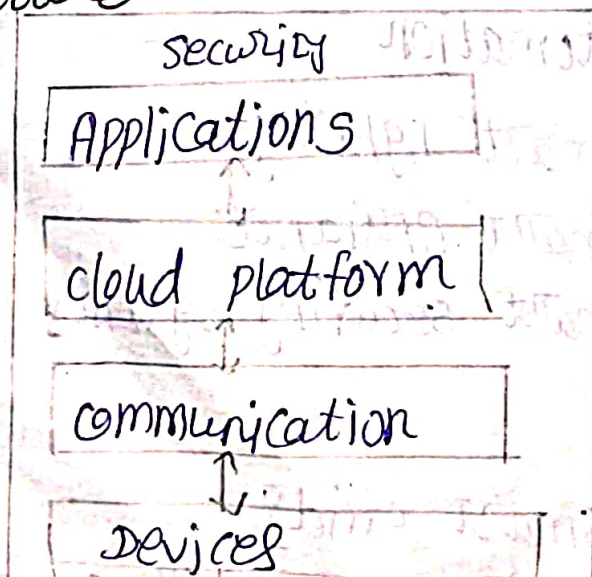 security
Applications
cloud platform
communication
Devices